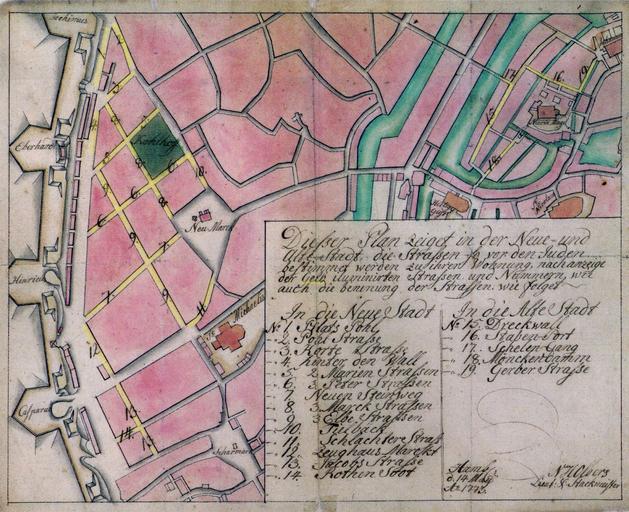 Eberhard
Kohlhof
Neu Marck
Henricus
Casparus
Scharmarck
Michaelis
Diesser Plan zeiget in der Neue- und
Alte-Stadt, die Strassen so vor den Juden
bestimmet werden zu ihrer Wohnung, nach anzeige
der Gelb illuminirten Strassen und Nummern, wei
auch die benennung der Strassen, wie folget
In die Neue Stadt
№ 1. Pylats Pohl
2 Pohl Strasse
3. Korte Strasse
4. hinter den Wall
5 2 Marien Strassen
6 3 Peter Strassen
7 Neuen Steinweg
8 3 Marck Strassen
9 3 Elbe Strassen
10.
11 Schlachter Strass
12. Zeughaus Marckt
13. Jacobs Strasse
14. Rothen Soot
In die Alte Stadt
№ 15. Dreckwall
16. Staben-Ort
17. Schelen-Gang
18. Möncken Damm
19. Gerber Strasse
Hamb.
d. 14 May
Ao 1773.